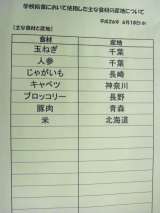 学校給食において使用した主な食材の産地について
平成26年 6月18日(水)
(主な食材と産地)
食材 産地
玉ねぎ 千葉
人参 千葉
じゃがいも 長崎
キャベツ 神奈川
ブロッコリー 長野
豚肉 青森
米 北海道